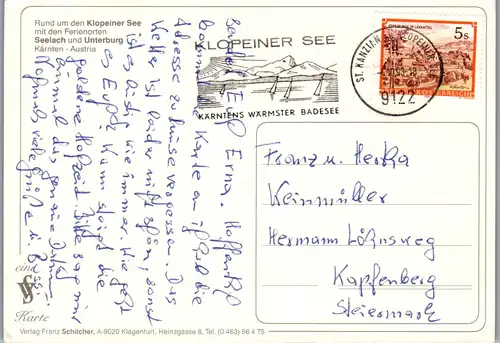 Rund um den Klopeiner See
mit den Ferienorten
Seelach und Unterburg
Kärnten - Austria
KLOPEINER SEE
KÄRNTENS WÄRMSTER BADESEE
ST. KANZIAN
KLOPEINER
9122
5s
Erna. Hoffentlich
bekommt ihr die Karte an, ich hab die
Adresse zu Hause vergessen. Das
Wetter ist leider nicht schön, sonst
ist es wie immer. Wie geht
es Euch? Wann steigt die
goldene Hochzeit. Bitte sag mir
einmal das genaue Datum
Nochmals viele Grüße u. Bussi
Franz u. Hertha
Weinmüller
Hermann Lönsweg
Kapfenberg
Steiermark
eine
Karte
Verlag Franz Schilcher, A-9020 Klagenfurt, Heinzgasse 8, Tel. (0 463) 56 4 75